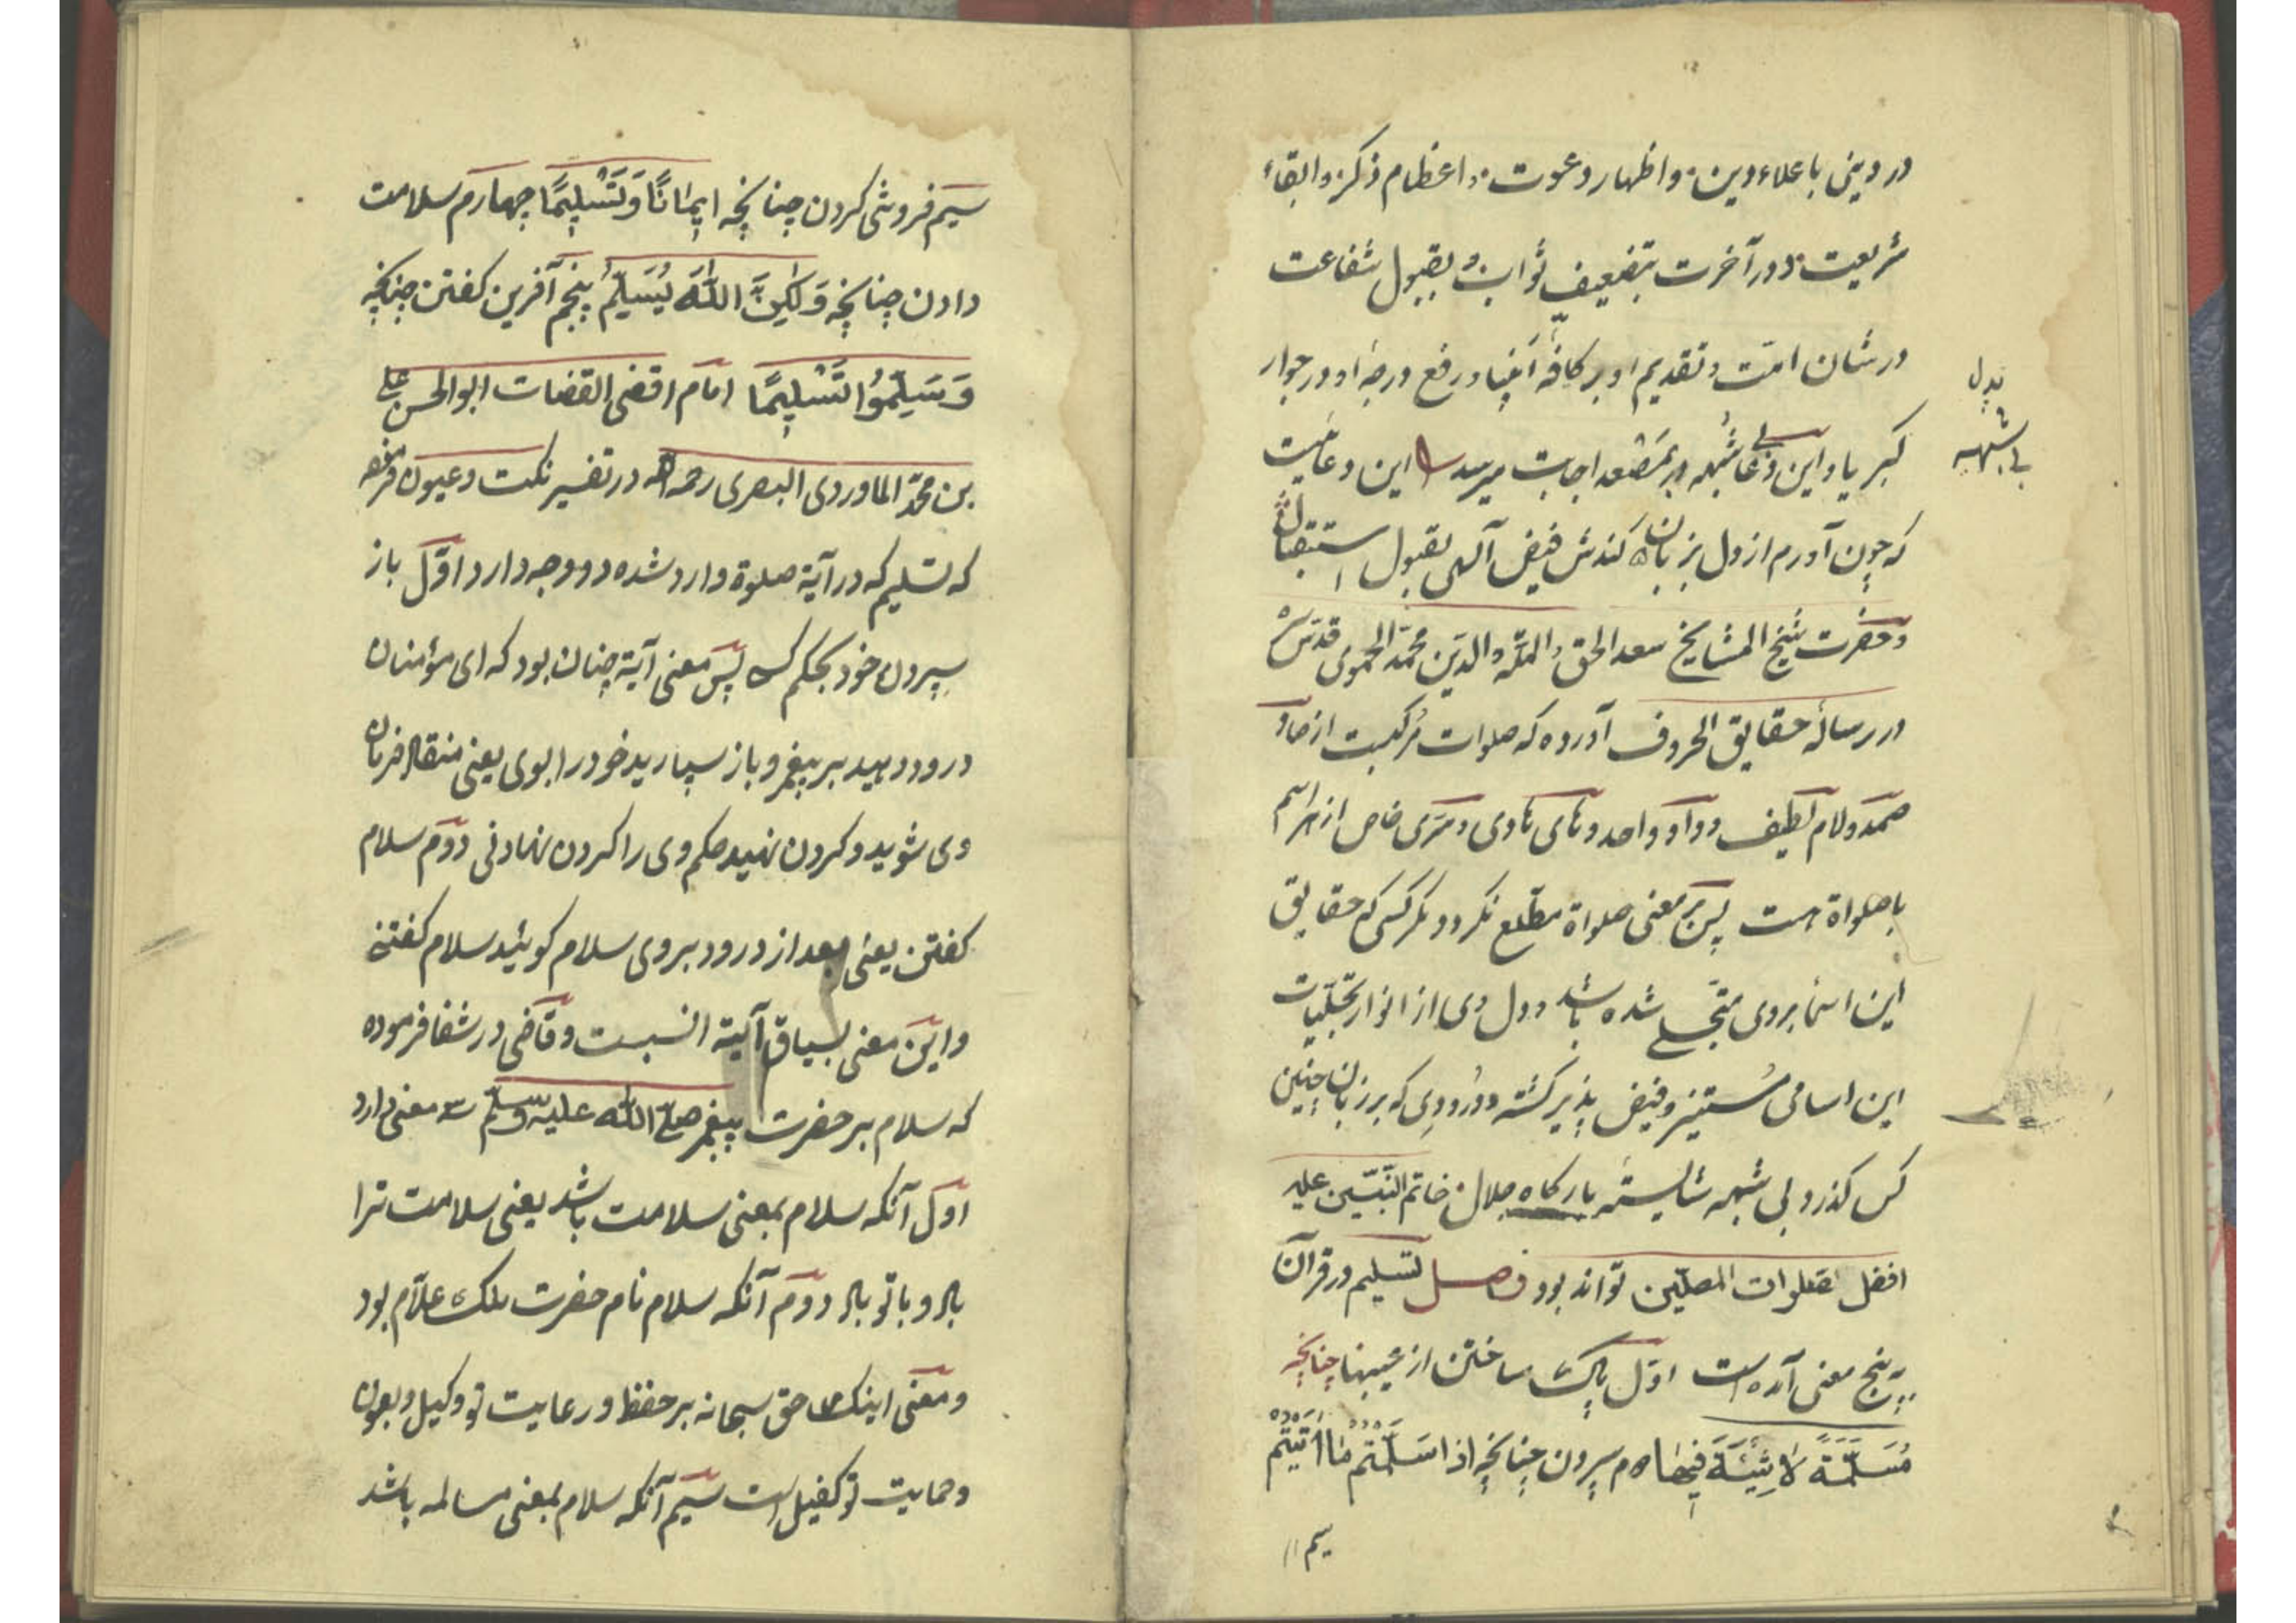 در دینی باعلاء دین و اظهار دعوت و اعظام ذکر و ابقاء
شریعت و در آخرت بتضعیف ثواب و بقبول شفاعت
در شان امّت و تقدیم او بر کافّه انبیا و رفع درجهٔ او در جوار
کبریا و این دعا بی شبهه بر مصعد اجابت میرسد این دعائیست
بدل
بی شبهه
که چون آورم از دل بزبان کندش فیض آلهی بقبول استقبال
و حضرت شیخ المشایخ سعد الحق و الملّه و الدین محمّد الحموی قدّس سرّه
در رسالهٔ حقایق الحروف آورده که صلوات مرکبست از صاد
صمد و لام لطیف و واو واحد و های هادی و سرّی خاص از هر اسم
با صلواة هست پس بر معنی صلواة مطّلع نکردد مکر کسی که حقایق
این اسما بروی متجلّی شده باشد و دل وی از انوار تجلّیات
این اسامی مستنیر و فیض پذیر کشته و درودی که بر زبان چنین
کس کذرد بی شبهه شایستهٔ بارکاه جلال خاتم النّبیّین علیه
افضل صلوات المصلّین تواند بود فصل تسلیم در قرآن
بر پنج معنی آمده است اوّل پاک ساختن از عیبها چنانچه
مُسَلَّمَةٌ لَا شِیَةَ فِیهَا دوم سپردن چنانچه اِذَا سَلَّمْتُمْ مَا آتَیْتُمْ
سیم
سیم فروشی کردن چنانچه اِیمَانًا وَ تَسْلِیمًا چهارم سلامت
دادن چنانچه وَلٰکِنَّ اللّٰهَ یُسَلِّمُ پنجم آفرین کفتن چنانچه
وَسَلِّمُوا تَسْلِیمًا امام اقضی القضات ابو الحسن علی
بن محمّد الماوردی البصری رحمه الله در تفسیر نکت و عیون فرموده
که تسلیم که در آیة صلوة وارد شده دو وجه دارد اوّل باز
سپردن خود بحکم کسی پس معنی آیة چنان بود که ای مؤمنان
درود دهید بر پیغمبر و باز سپارید خود را بوی یعنی منقاد فرمان
وی شوید و کردن نهید حکم وی را کردن نهادنی دوم سلام
کفتن یعنی بعد از درود بروی سلام کوئید سلام کفتنی
و این معنی بسیاق آیة انسبست و قاضی در شفا فرموده
که سلام بر حضرت پیغمبر صلّی اللّه علیه و سلّم سه معنی دارد
اوّل آنکه سلام بمعنی سلامت باشد یعنی سلامت ترا
باد و با تو باد دوم آنکه سلام نام حضرت ملک علّام بود
و معنی اینکه حق سبحانه بر حفظ و رعایت تو وکیل و بعون
و حمایت تو کفیل است سیم آنکه سلام بمعنی مسالمه باشد